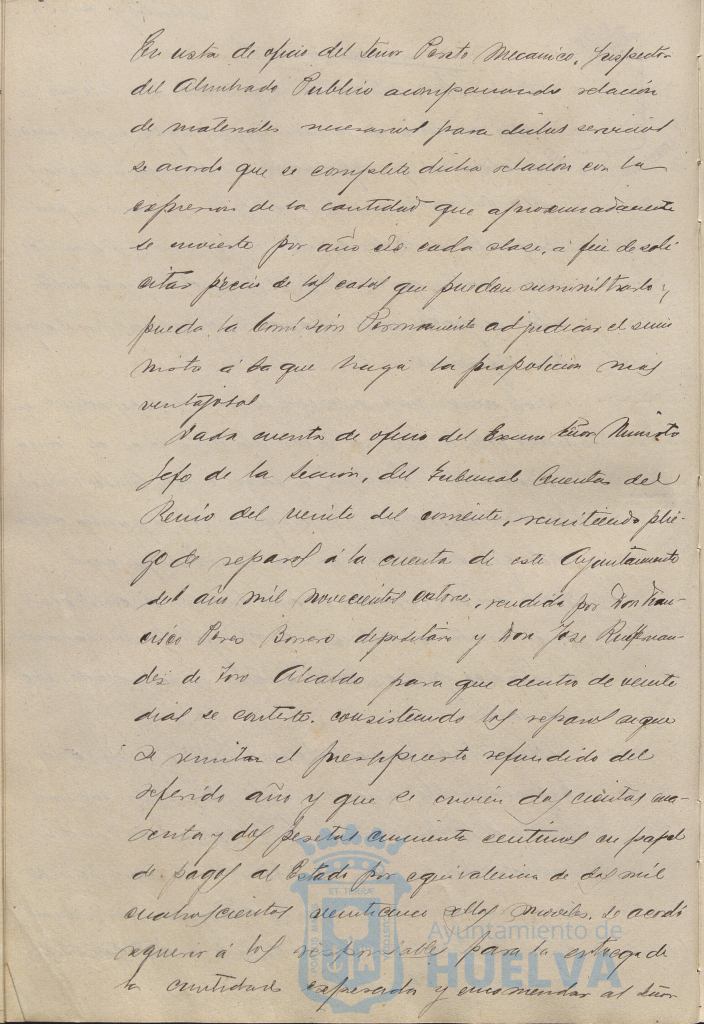 En vista de oficio del Señor Perito Mecanico, Inspector
del Alumbrado Publico acompañando relación
de materiales necesarios para dichos servicios
se acordo que se complete dicha relación con la
expresion de la cantidad que aproximadamente
se invierte por año de cada clase, á fin de soli
citar precio de las casas que puedan suministrarlo y
pueda la Comisión Permanente adjudicar el sumi
nistro á la que haga la proposicion mas
ventajosa
Dada cuenta de oficio del Excmo Señor Ministro
Jefe de la Seccion, del Tribunal Cuentas del
Reino del veinte del corriente, remitiendo plie-
go de reparos á la cuenta de este Ayuntamiento
del año mil novecientos catorce, rendida por Don Fran-
cisco Peres Borrero depositario y Don Jose
dez de Toro Alcalde para que dentro de veinte
dias se conteste. consistiendo los reparos en que
se remita el presupuesto refundido del
referido año y que se envien doscientas cua-
renta y dos pesetas cincuenta centimos en papel
de pagos al Estado por equivalencia de dos mil
cuatrocientos veinticinco sellos moviles. se acordó
requerir á los responsables para la entrega de
la cantidad expresada y encomendar al Señor
Ayuntamiento de
HUELVA